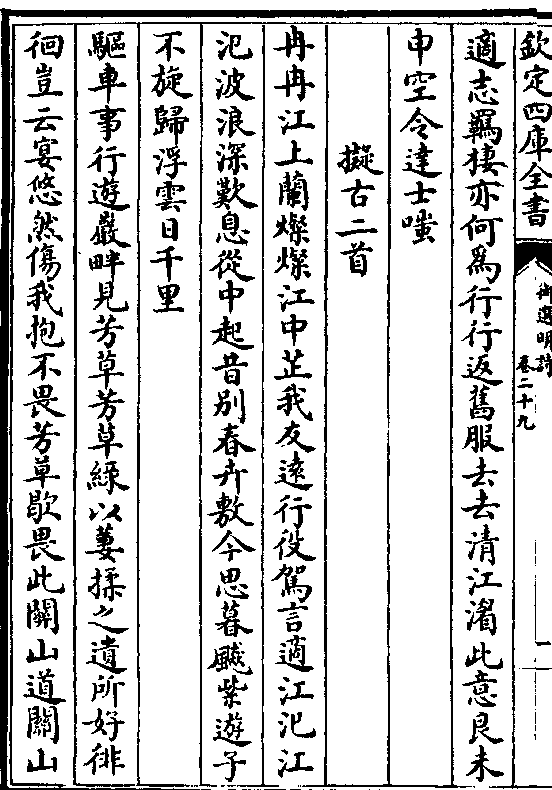 欽定四庫全書
御選明詩
卷二十九
一
適志羈棲亦何爲行行返舊服去去清江渚此意良未
申空令達士嗤
擬古二首
冉冉江上蘭燦燦江中芷我友遠行役駕言適江汜江
汜波浪深歎息從中起昔別春卉敷今思暮飈紫遊子
不旋歸浮雲日千里
驅車事行遊巖畔見芳草芳草綠以萋揉之遺所好徘
徊豈云宴悠然傷我抱不畏芳草歇畏此關山道關山